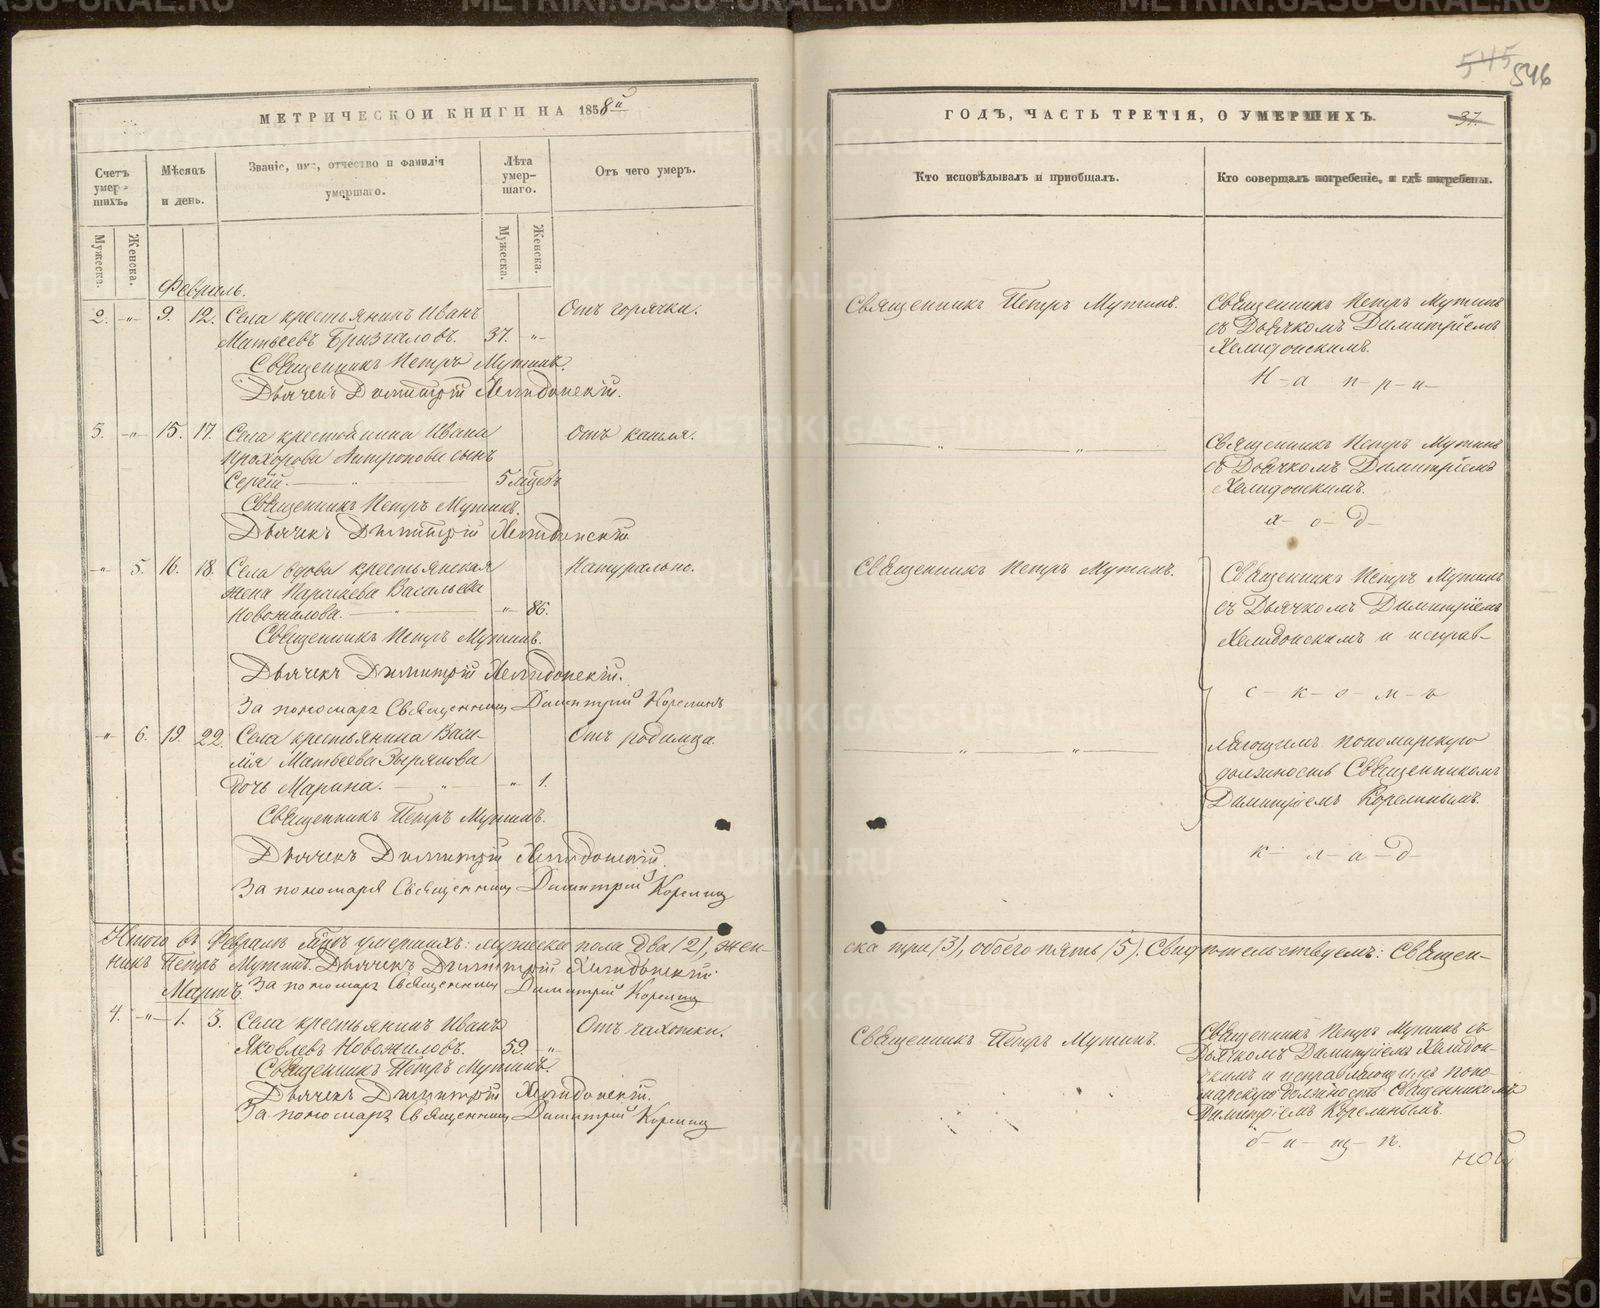 545 546
МЕТРИЧЕСКОЙ КНИГИ НА 1858й
ГОДЪ, ЧАСТЬ ТРЕТІЯ, О УМЕРШИХЪ.
37.
Счетъ умер-
шихъ.
Мужеска.
Женска.
Мѣсяцъ
и день.
Званіе, имя, отчество и фамилія
умершаго.
Лѣта
умер-
шаго.
Мужеска.
Женска.
Отъ чего умеръ.
Кто исповѣдывалъ и приобщалъ.
Кто совершалъ погребеніе, и гдѣ погребены.
Февраль.
2. -„- 9. 12. Села крестьянинъ Иванъ
Матвеевъ Бризгаловъ. 37. „
Отъ горячки.
Священникъ Петръ Мутинъ.
Дьячекъ Димитрій Хелидонскій.
Священникъ Петръ Мутинъ.
Священникъ Петръ Мутинъ
съ Дьячкомъ Димитріемъ
Хелидонскимъ.
Н-а п-р-и-
3. -„- 15. 17. Села крестьянина Ивана
Прохорова Антропова сынъ
Сергій. 5 мѣсцевъ
Отъ кашля.
Священникъ Петръ Мутинъ.
Дьячекъ Димитрій Хелидонскій
„ „
Священникъ Петръ Мутинъ
съ Дьячкомъ Димитріемъ
Хелидонскимъ.
х-о-д-
-„- 5. 16. 18. Села вдова крестьянская
жена Параскева Васильева
Новожилова. „ 86.
Натурально.
Священникъ Петръ Мутинъ.
Дьячекъ Димитрій Хелидонскій.
За пономаря Священникъ Димитрій Корелинъ
Священникъ Петръ Мутинъ.
Священникъ Петръ Мутинъ
съ Дьячкомъ Димитріемъ
Хелидонскимъ и исправ-
с-к-о-м-ъ
-„- 6. 19. 22. Села крестьянина Васи-
лія Матвеева Звѣрякова
дочь Марина. „ 1.
Отъ родимца.
Священникъ Петръ Мутинъ.
Дьячекъ Димитрій Хелидонскій.
За пономаря Священникъ Димитрій Корелинъ
„ „
ляющимъ пономарскую
должность Священникомъ
Димитріемъ Корелинымъ.
к-л-а-д-
Итого въ Февралѣ м-цѣ умершихъ: мужеска пола два (2), жен-
ска три (3), обоего пять (5). Свидѣтельствуемъ: Священ-
никъ Петръ Мутинъ. Дьячекъ Димитрій Хелидонскій.
За пономаря Священникъ Димитрій Корелинъ
Мартъ.
4. -„- 1. 3. Села крестьянинъ Иванъ
Яковлевъ Новожиловъ. 59. -„-
Отъ чахотки.
Священникъ Петръ Мутинъ.
Дьячекъ Димитрій Хелидонскій.
За пономаря Священникъ Димитрій Корелинъ
Священникъ Петръ Мутинъ.
Священникъ Петръ Мутинъ съ
Дьячкомъ Димитріемъ Хелидон-
скимъ и исправляющимъ поно-
марскую должность Священникомъ
Димитріемъ Корелинымъ.
б-и-щ-ѣ.
ной
METRIKI.GASO-URAL.RU